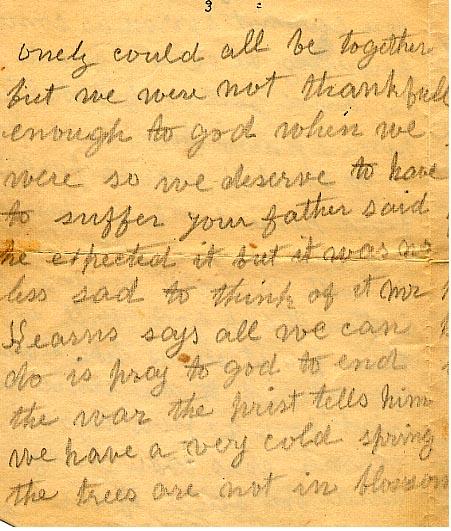 3
onely could all be together
but we were not thankfull
enough to god when we
were so we deserve to have
to suffer your father said
he expected it but it was no
less sad to think of it Mr
Kearns says all we can
do is pray to god to end
the war the prist tells him
we have a very cold spring
the trees are not in blossom